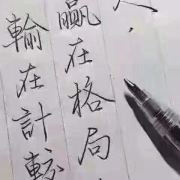 赢在格局
輸在計較